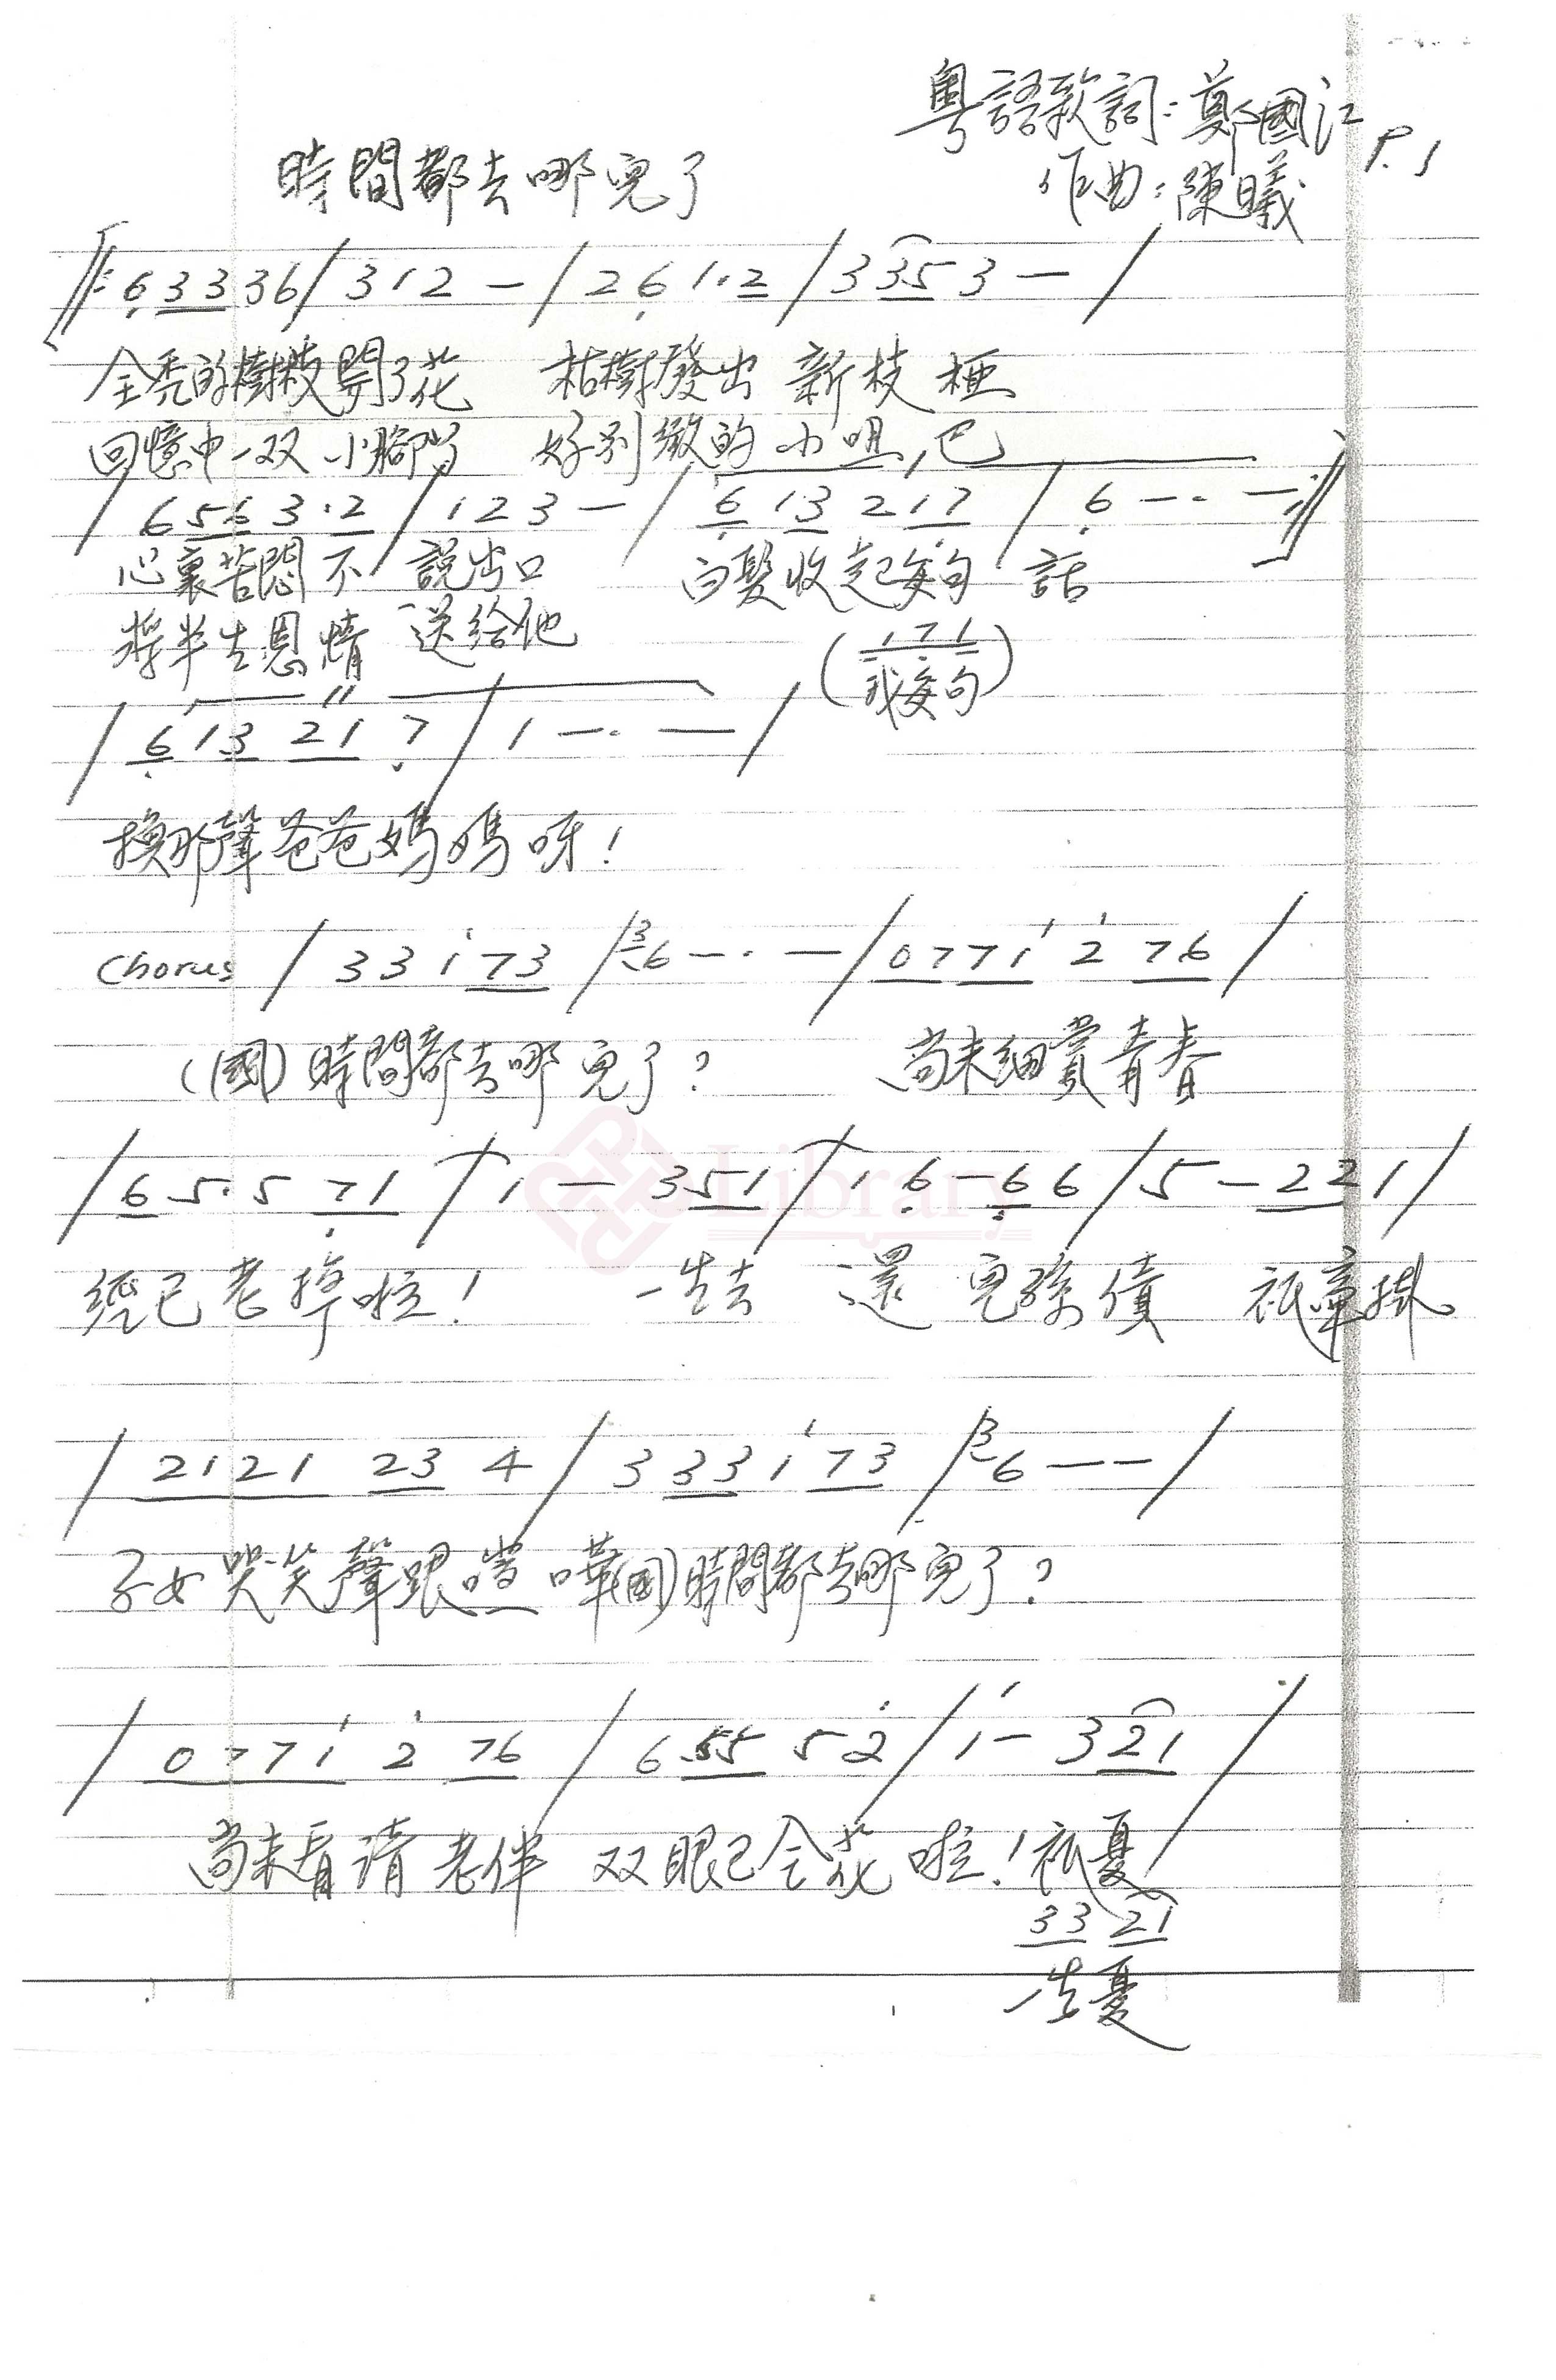 粵語歌詞：鄭國江 P.1
時間都去哪兒了 作曲：陳曦
‖: 6 3 3 3 6 / 3 1 2 — / 2 6 1 · 2 / 3 3 5 3 — /
全禿的樹枝開了花 枯樹發出新枝椏
回憶中一双小腳 好別緻的小咀巴
/ 6 5 6 3 · 2 / 1 2 3 — / 6 1 3 2 1 7 / 6 — · — :‖
心裏苦悶不說出口 白髮收起每句話
將半生恩情送給他 ( 1 7 1
我每句 )
/ 6 1 3 2 1 7 / 1 — · — /
換那聲爸爸媽媽呀！
Chorus / 3 3 1 7 3 / 3 6 — · — / 0 7 7 1 2 7 6 /
(國) 時間都去哪兒了？ 尚未細賞青春
/ 6 5 · 5 7 1 / 1 — 3 5 1 / 1 6 — 6 6 / 5 — 2 2 1 /
Library
經已老掉啦！ 一生去還完孽債 祇牽掛
/ 2 1 2 1 2 3 4 / 3 3 3 1 7 3 / 3 6 — — /
子女哭笑聲跟喧嘩(國)時間都去哪兒了？
/ 0 7 7 1 2 7 6 / 6 5 5 5 2 / 1 — 3 2 1 /
尚未看清老伴双眼已全花啦！祇憂
3 3 2 1
一生憂